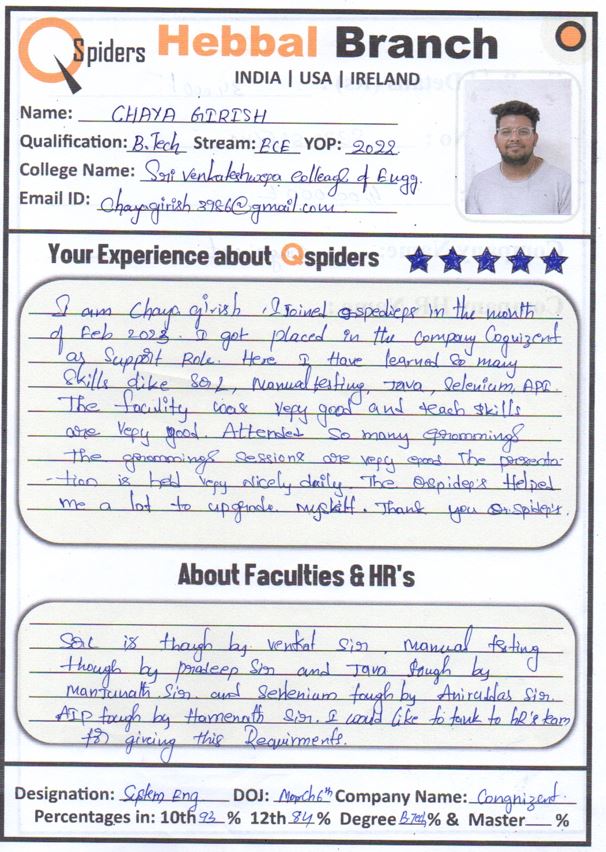 QSpiders Hebbal Branch
INDIA | USA | IRELAND
Name: CHAYA GIRISH
Qualification: B.Tech Stream: ECE YOP: 2022
College Name: Sri Venkateshwara Colleage of Engg.
Email ID: Chayagirish3986@gmail.com
Your Experience about Qspiders
I am Chaya girish, I Joined Qspediers in the month
of Feb 2023. I got placed in the company Cognizent
as Support Role. Here I Have learned so many
Skills dike SQL, Manual testing, Java, Selenium, API.
The faculity was very good and teach skills
are very good. Attended so many grommings
The grommings sessions are very good The presenta-
-tion is held very nicely daily. The Qspider's Helped
me a lot to upgrade myskill. Thank you Q-spider's.
About Faculties & HR's
SQL is though by venkat Sir, Manual testing
though by pradeep Sir and Java tough by
Manjunath Sir. and Selenium tough by Aniruddas Sir.
AIP tough by Hamenath Sir. I would like to tank to hR's team
for giveing this Requirments.
Designation: System Eng DOJ: March 6th Company Name: Congnizent.
Percentages in: 10th 93 % 12th 84 % Degree B.Tech % & Master %